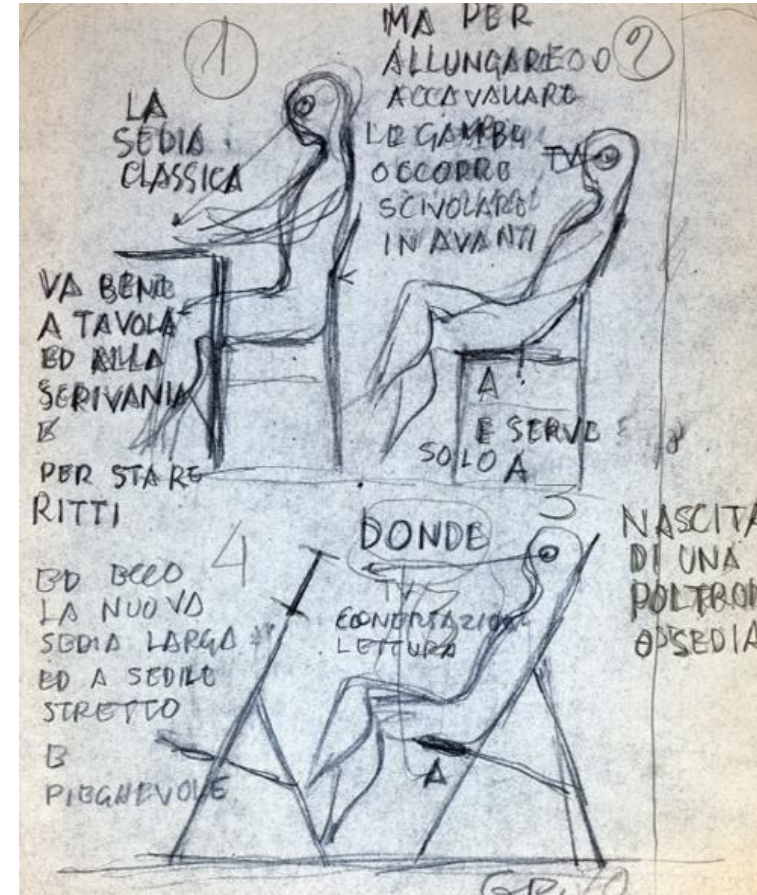 1
LA
SEDIA
CLASSICA
VA BENE
A TAVOLA
ED ALLA
SCRIVANIA
E
PER STARE
RITTI
2
MA PER
ALLUNGARE O
ACCAVALLARE
LE GAMBE
OCCORRE
SCIVOLARE
IN AVANTI
TV
A
E SERVE
SOLO A
3
DONDE
TV
CONERTAZIONE
LETTURA
A
NASCITA
DI UNA
POLTRON
O SEDIA
4
ED ECCO
LA NUOVA
SEDIA LARGA
ED A SEDILE
STRETTO
E
PIEGHEVOLE